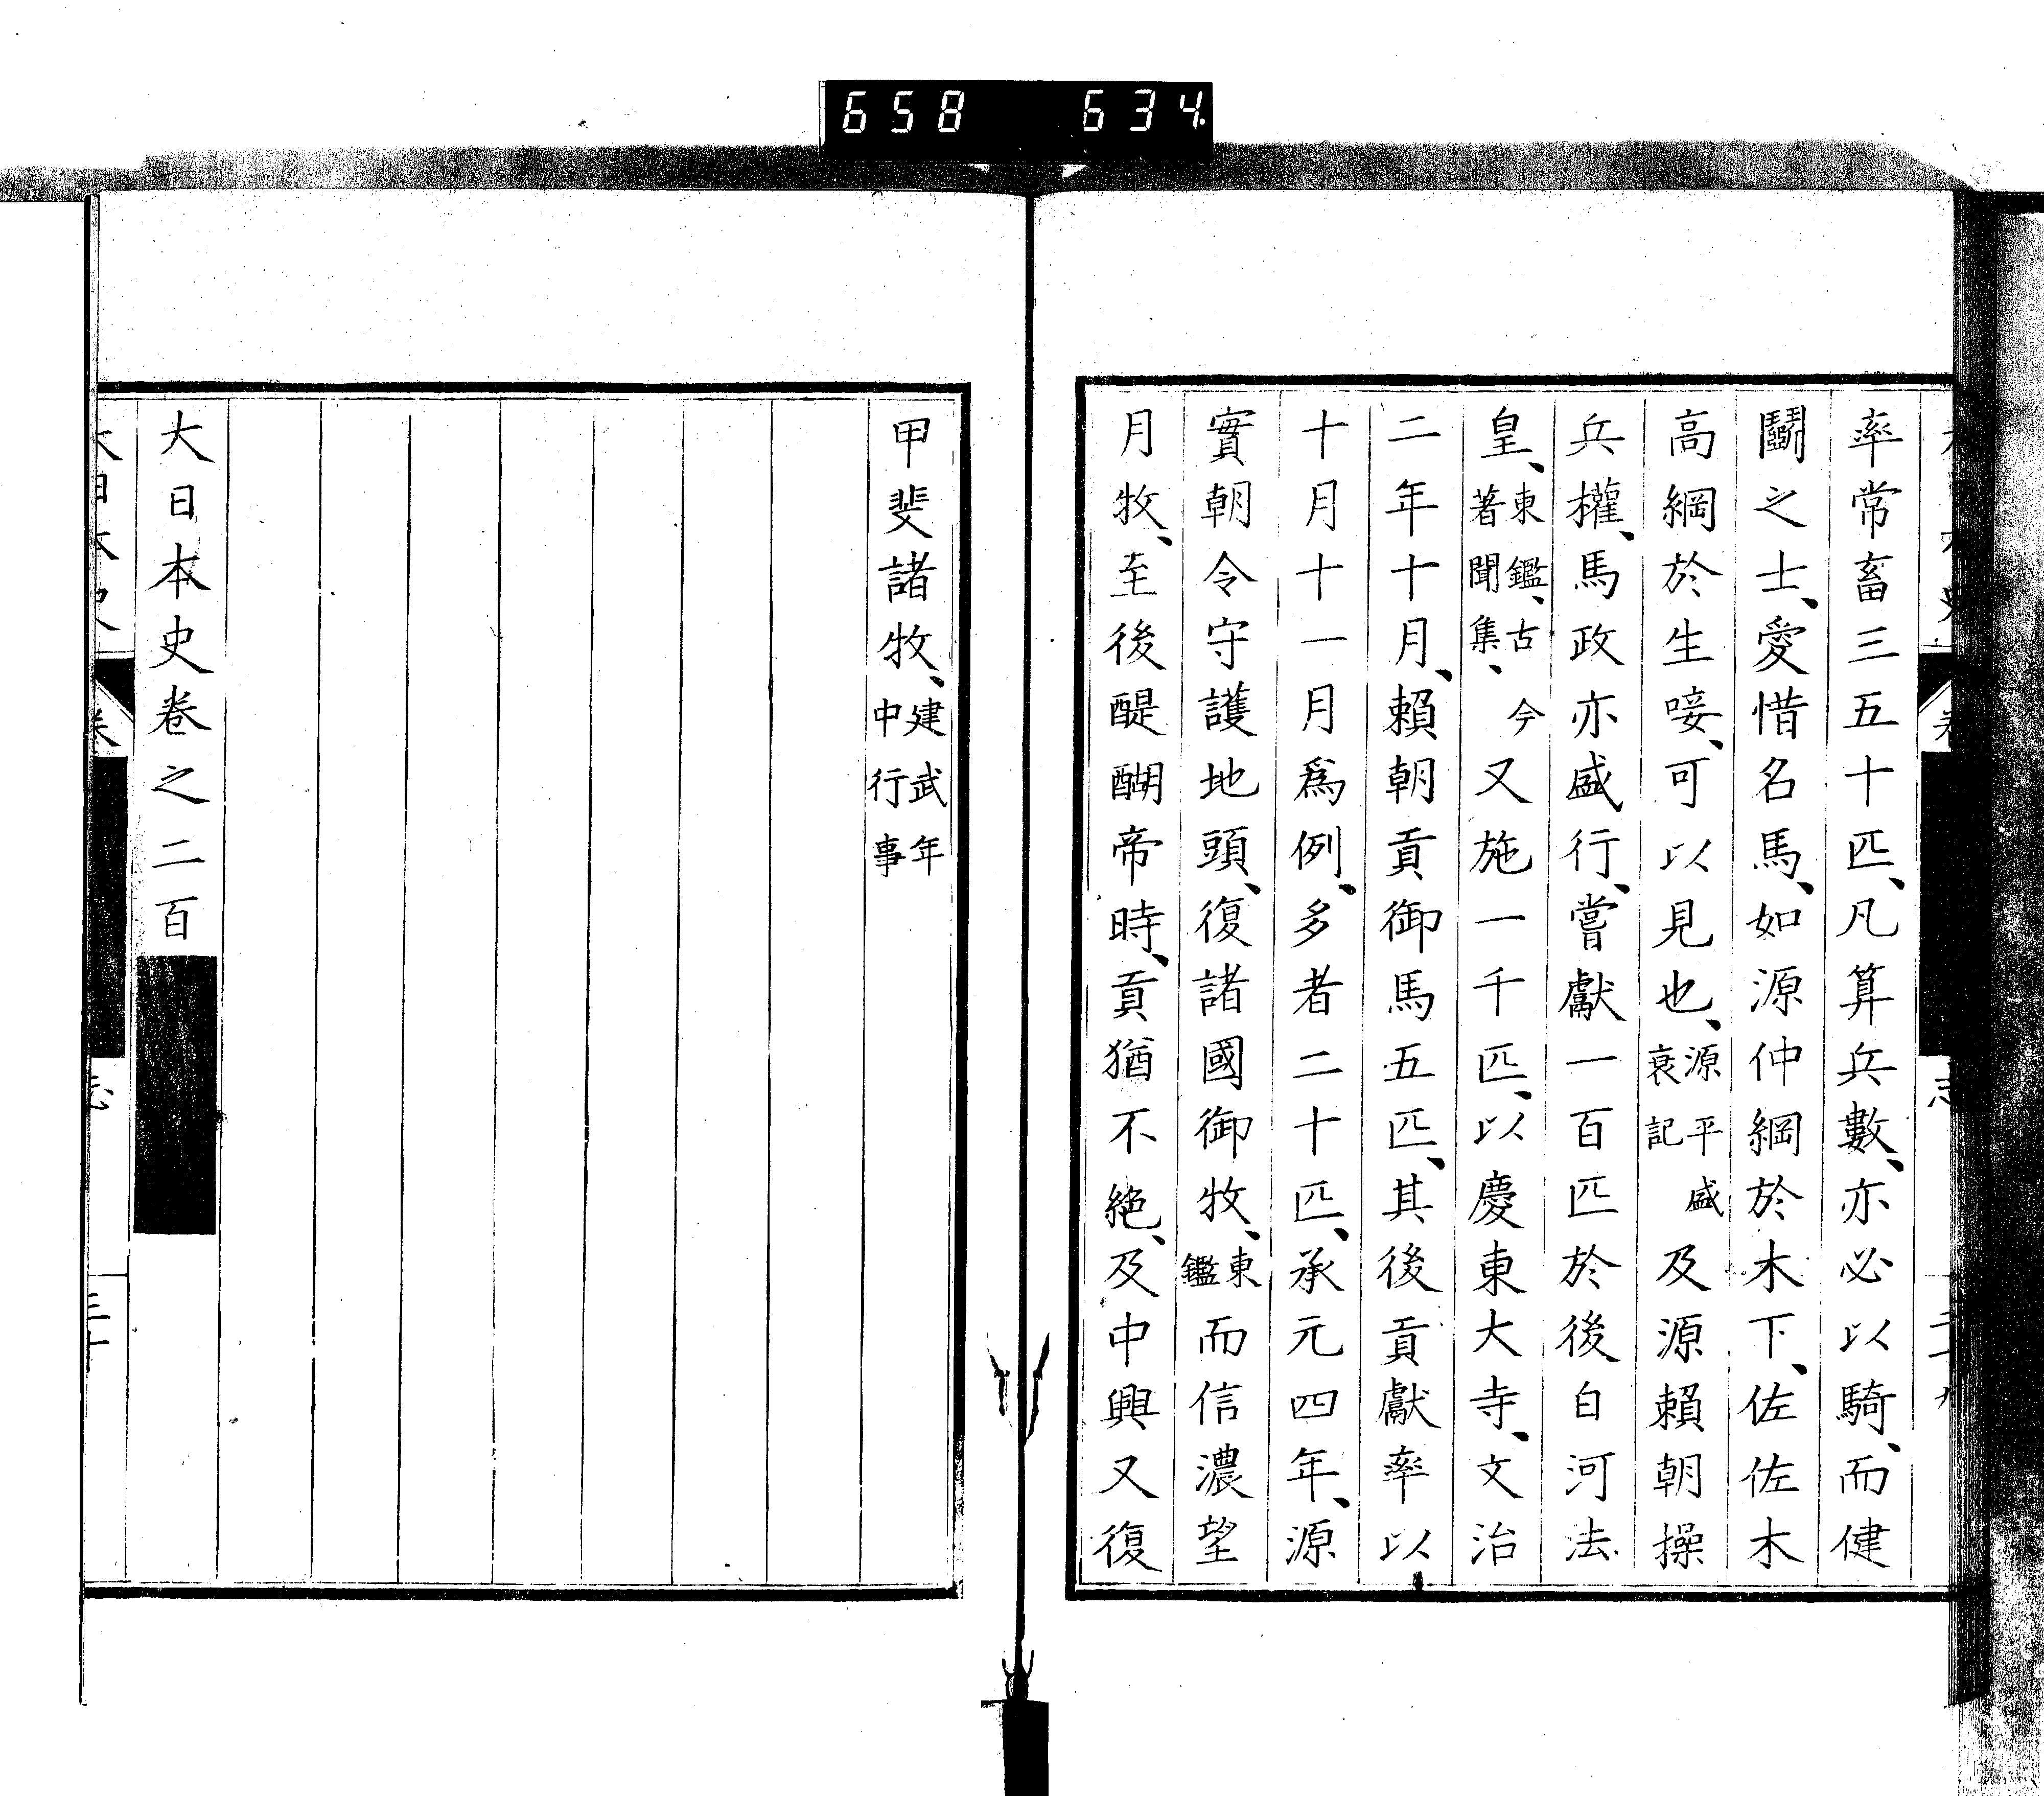 658 634
率常畜三五十匹、凡算兵數、亦必以騎、而健
鬭之士、愛惜名馬、如源仲綱於木下、佐佐木
高綱於生唼、可以見也、源平盛衰記及源賴朝操
兵權、馬政亦盛行、嘗獻一百匹於後白河法
皇、東鑑、古今著聞集、又施一千匹、以慶東大寺、文治
二年十月、賴朝貢御馬五匹、其後貢獻率以
十月十一月爲例、多者二十匹、承元四年、源
實朝令守護地頭、復諸國御牧、東鑑而信濃望
月牧、至後醍醐帝時、貢猶不絶、及中興又復
甲斐諸牧、建武年中行事
大日本史卷之二百